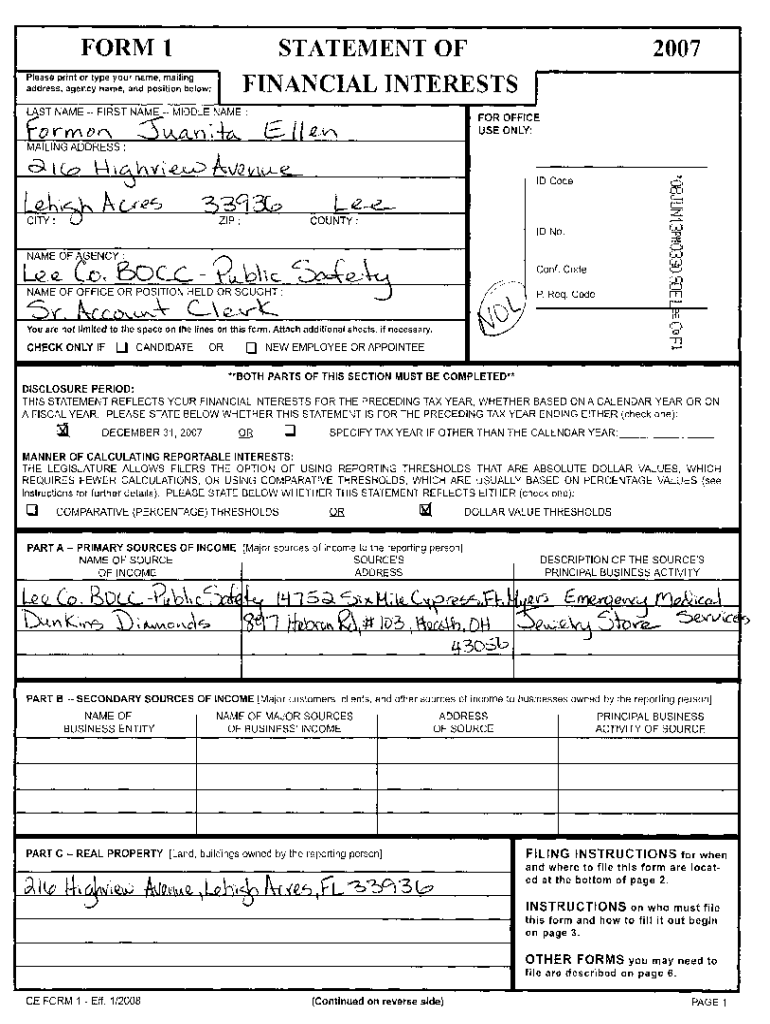 FORM 1 STATEMENT OF 2007
Please print or type your name, mailing
address, agency name, and position below:
FINANCIAL INTERESTS
LAST NAME -- FIRST NAME -- MIDDLE NAME :
Formon Juanita Ellen
MAILING ADDRESS :
216 Highview Avenue
Lehigh Acres 33936 Lee
CITY : ZIP : COUNTY :
NAME OF AGENCY :
Lee Co. BOCC - Public Safety
NAME OF OFFICE OR POSITION HELD OR SOUGHT :
Sr. Account Clerk
You are not limited to the space on the lines on this form. Attach additional sheets, if necessary.
CHECK ONLY IF CANDIDATE OR NEW EMPLOYEE OR APPOINTEE
FOR OFFICE
USE ONLY:
ID Code
ID No.
Conf. Code
P. Req. Code
NOL
**BOTH PARTS OF THIS SECTION MUST BE COMPLETED**
DISCLOSURE PERIOD:
THIS STATEMENT REFLECTS YOUR FINANCIAL INTERESTS FOR THE PRECEDING TAX YEAR, WHETHER BASED ON A CALENDAR YEAR OR ON
A FISCAL YEAR. PLEASE STATE BELOW WHETHER THIS STATEMENT IS FOR THE PRECEDING TAX YEAR ENDING EITHER (check one):
DECEMBER 31, 2007 OR SPECIFY TAX YEAR IF OTHER THAN THE CALENDAR YEAR:
MANNER OF CALCULATING REPORTABLE INTERESTS:
THE LEGISLATURE ALLOWS FILERS THE OPTION OF USING REPORTING THRESHOLDS THAT ARE ABSOLUTE DOLLAR VALUES, WHICH
REQUIRES FEWER CALCULATIONS, OR USING COMPARATIVE THRESHOLDS, WHICH ARE USUALLY BASED ON PERCENTAGE VALUES (see
instructions for further details). PLEASE STATE BELOW WHETHER THIS STATEMENT REFLECTS EITHER (check one):
COMPARATIVE (PERCENTAGE) THRESHOLDS OR DOLLAR VALUE THRESHOLDS
PART A -- PRIMARY SOURCES OF INCOME [Major sources of income to the reporting person]
NAME OF SOURCE SOURCE'S DESCRIPTION OF THE SOURCE'S
OF INCOME ADDRESS PRINCIPAL BUSINESS ACTIVITY
Lee Co. BOCC - Public Safety 14752 Six Mile Cypress, Ft. Myers Emergency Medical
Dunkins Diamonds 897 Hebron Rd, # 103, Heath, OH Jewelry Store Services
43056
PART B -- SECONDARY SOURCES OF INCOME [Major customers, clients, and other sources of income to businesses owned by the reporting person]
NAME OF NAME OF MAJOR SOURCES ADDRESS PRINCIPAL BUSINESS
BUSINESS ENTITY OF BUSINESS' INCOME OF SOURCE ACTIVITY OF SOURCE
PART C -- REAL PROPERTY [Land, buildings owned by the reporting person]
216 Highview Avenue, Lehigh Acres, FL 33936
FILING INSTRUCTIONS for when
and where to file this form are locat-
ed at the bottom of page 2.
INSTRUCTIONS on who must file
this form and how to fill it out begin
on page 3.
OTHER FORMS you may need to
file are described on page 6.
CE FORM 1 - Eff. 1/2008 (Continued on reverse side) PAGE 1